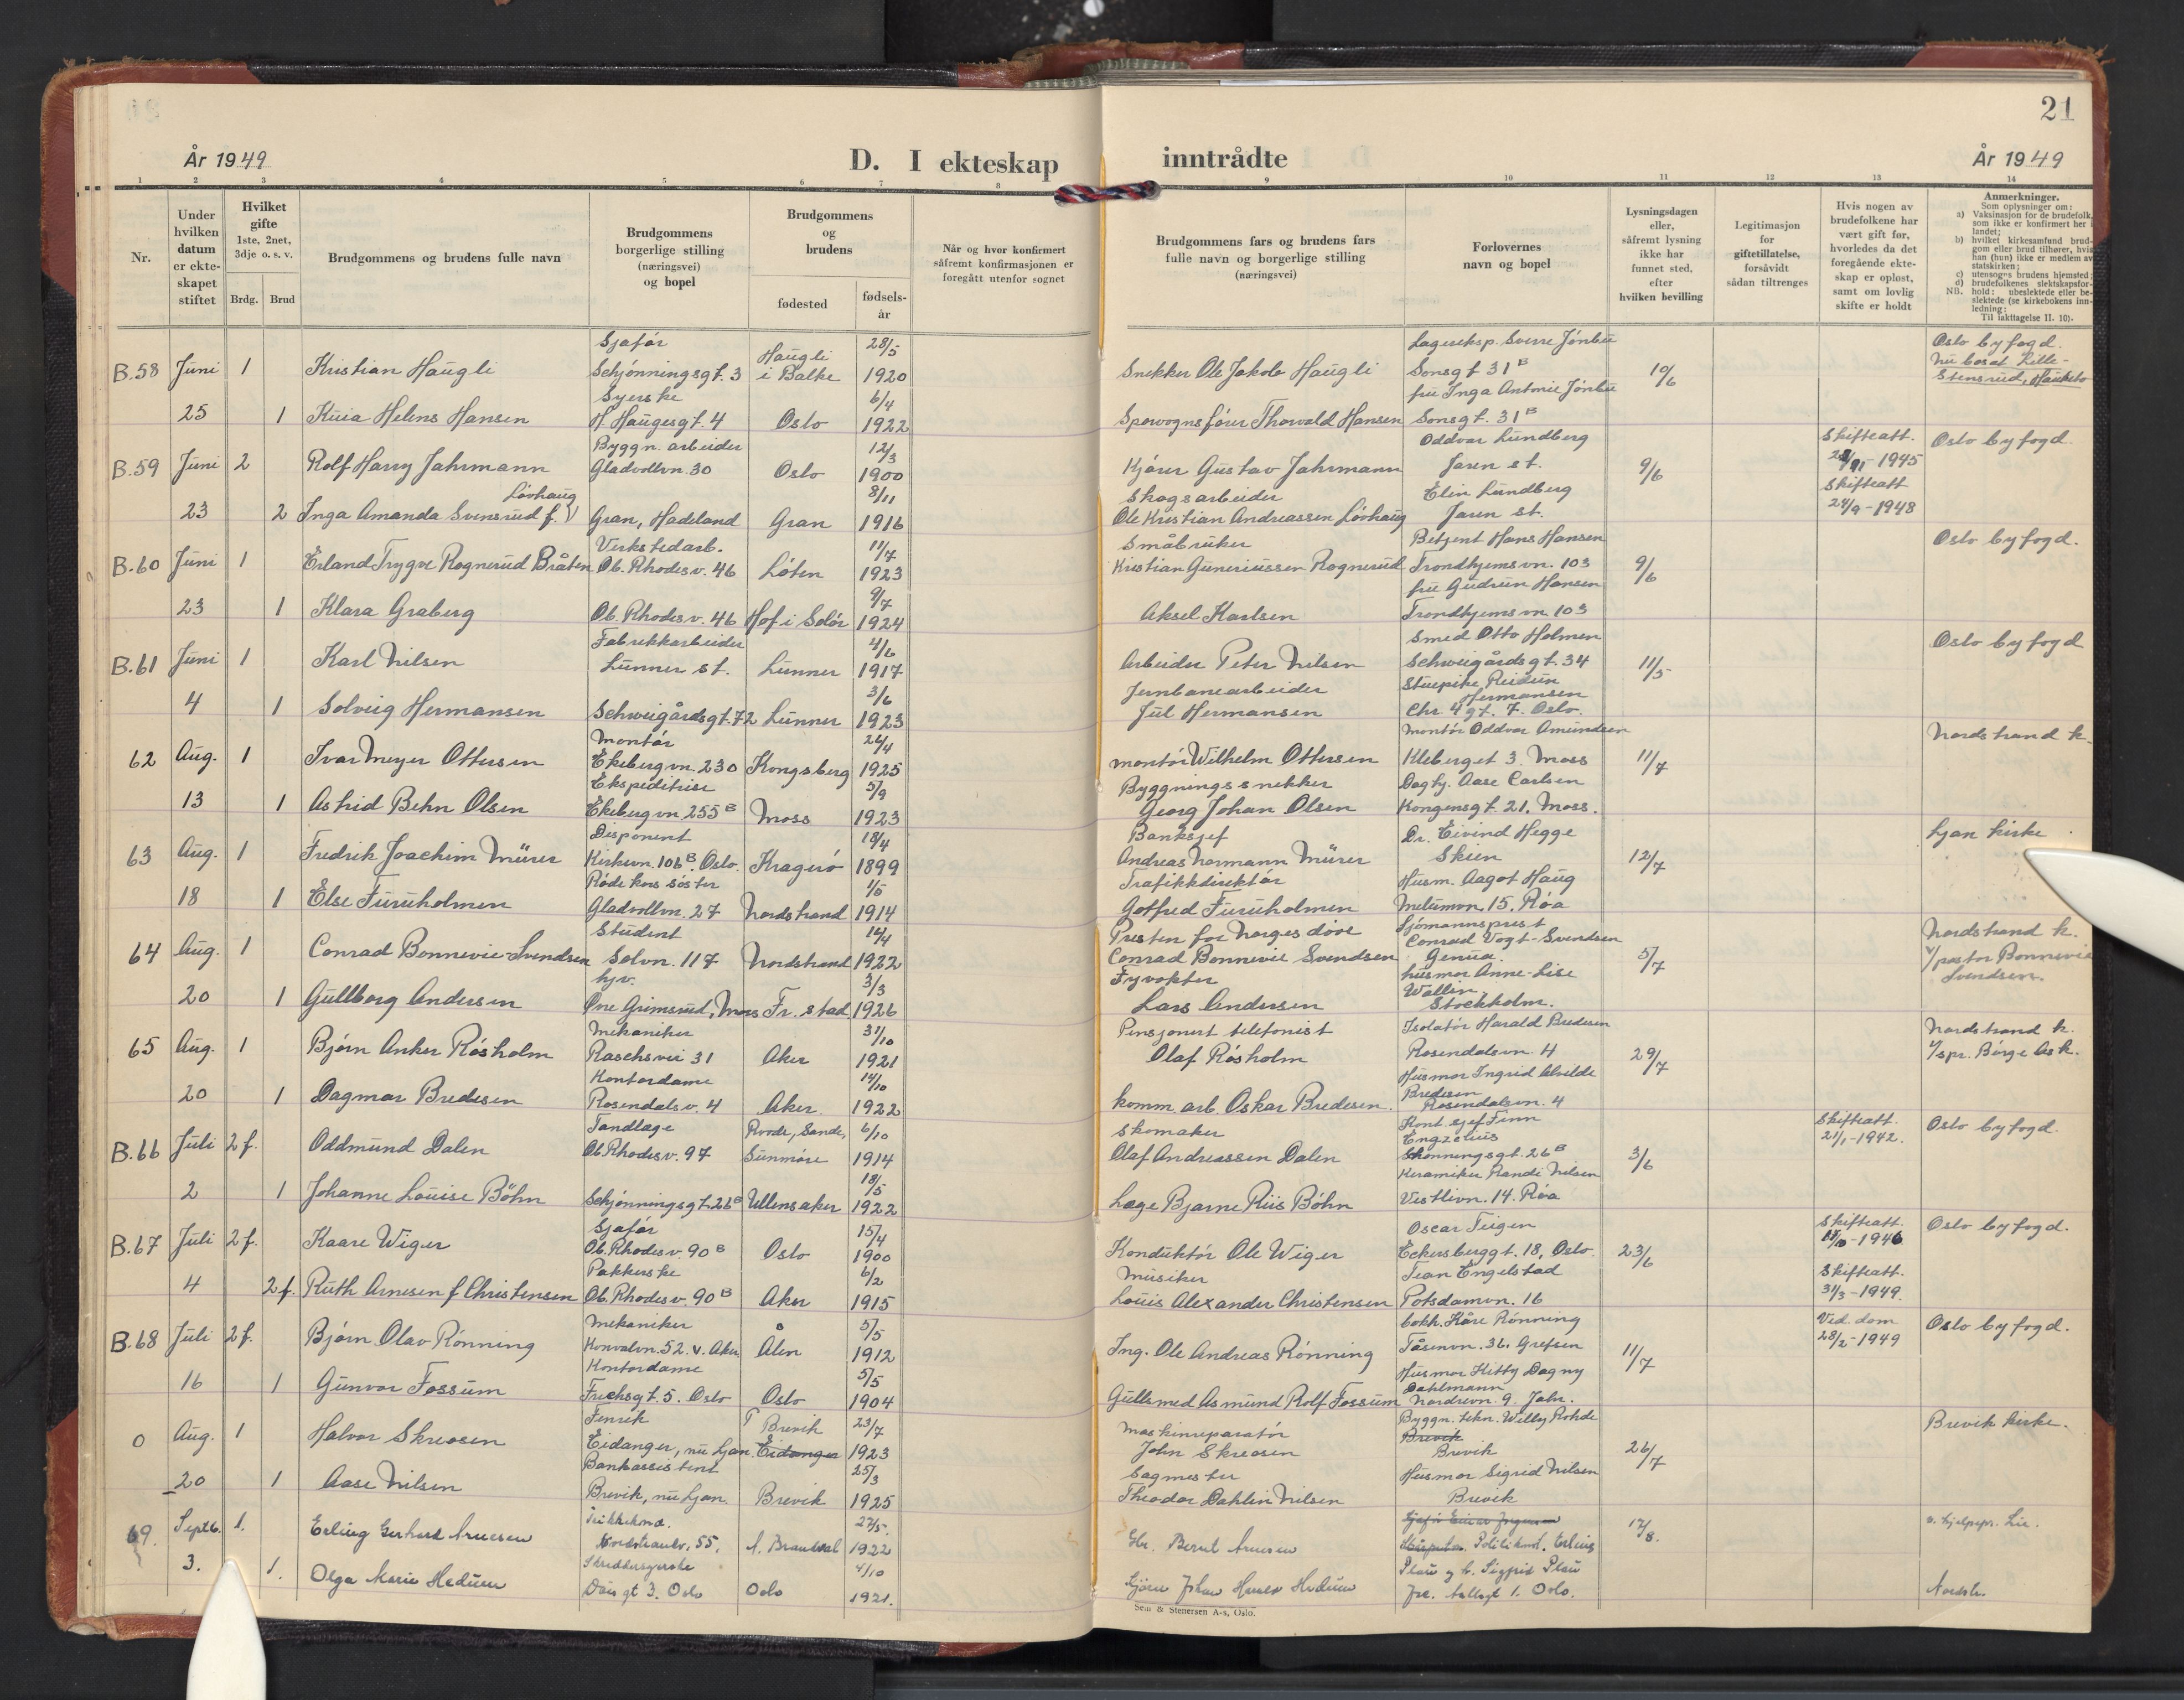 21
År 1949
D. I ekteskap inntrådte
År 1949
1 2 3 4 5 6 7 8 9 10 11 12 13 14
Nr.
Under hvilken datum er ekte-skapet stiftet
Hvilket gifte 1ste, 2net, 3dje o. s. v.
Brdg. Brud
Brudgommens og brudens fulle navn
Brudgommens borgerlige stilling (næringsvei) og bopel
Brudgommens og brudens
fødested
fødsels-år
Når og hvor konfirmert såfremt konfirmasjonen er foregått utenfor sognet
Brudgommens fars og brudens fars fulle navn og borgerlige stilling (næringsvei)
Forlovernes navn og bopel
Lysningsdagen eller, såfremt lysning ikke har funnet sted, efter hvilken bevilling
Legitimasjon for giftetillatelse, forsåvidt sådan tiltrenges
Hvis nogen av brudefolkene har vært gift før, hvorledes da det foregående ekte-skap er oplost, samt om lovlig skifte er holdt
Anmerkninger.
Som oplysninger om:
a) Vaksinasjon for de brudefolk, som ikke er konfirmert her i landet;
b) hvilket kirkesamfund brud-gom eller brud tilhører, hvis han (hun) ikke er medlem av statskirken;
c) utensogns brudens hjemsted;
d) brudefolkenes slektskapsfor-hold: ubeslektede eller be-slektede (se kirkebokens inn-ledning:
NB. Til iakttagelse II. 10).
B.58 Juni 1 Kristian Haugli Sjåfør Schjønningsgt. 3 Haugli i Balke 28/5 1920 Snekker Ole Jakob Haugli Lagereksp. Sverre Jónbu Sonsgt 31 B 10/6 Oslo byfogd. Nu bosat Lille-Stensrud, Hauketo
25 1 Helens Hansen Syerske H. Haugesgt. 4 Oslo 6/4 1922 Sporvognsfører Thorvald Hansen fru Inga Antonie Jónbu Sonsgt. 31 B
B.59 Juni 2 Rolf Harry Jahrmann Byggn. arbeider Gladvollvn. 30 Oslo 12/3 1900 Kjører Gustav Jahrmann Oddvar Lundberg Jaren st. 9/6 Skifteatt. 1945 Oslo byfogd.
23 2 Inga Amanda Svensrud f. Lövhaug Gran, Hadeland Gran 8/11 1916 Skogsarbeider Ole Kristian Andreassen Lövhaug Elin Lundberg Jaren st. Skifteatt 24/9-1948
B.60 Juni 1 Erland Trygve Rognerud Bråten Verkstedarb. Ob. Rhodesv. 46 Löten 11/7 1923 Småbruker Kristian Guneriussen Rognerud Betjent Hans Hansen Trondhjemsvn. 103 9/6 Oslo byfogd.
23 1 Klara Graberg Ob. Rhodesv. 46 Hof i Solør 9/7 1924 Aksel Karlsen fru Gudrun Hansen Trondhjemsvn. 103
B.61 Juni 1 Karl Nilsen Fabrikkarbeider Lunner st. Lunner 4/6 1917 Arbeider Peter Nilsen Smed Otto Holmen Schweigårdsgt. 34 11/5 Oslo byfogd
4 1 Solveig Hermansen Schweigårdsgt. 72 Lunner 3/6 1923 Jernbanearbeider Jul Hermansen Stuepike Reidun Hermansen Chr. 4 gt. 7. Oslo.
62 Aug. 1 Ivar Meyer Ottersen Montør Ekebergvn. 230 Kongsberg 24/4 1925 Montør Wilhelm Ottersen Montør Oddvar Amundsen Kleberget 3. Moss 11/7 Nordstrand k.
13 1 Astrid Behn Olsen Ekspeditrise Ekebergvn. 255 B Moss 5/9 1923 Byggningssnekker Georg Johan Olsen Daghj. Aase Carlsen Kongensgt. 21. Moss.
63 Aug. 1 Fredrik Joachim Mürer Disponent Kirkevn. 106 B. Oslo. Kragerö 18/4 1899 Banksjef Andreas Normann Mürer Dr. Eivind Hegge Skien 12/7 Ljan kirke
18 1 Else Furuholmen Røde kors søster Gladvollvn. 27 Nordstrand 1/5 1914 Trafikkdirektør Gotfred Furuholmen Husm. Aagot Haug Melumvn. 15. Röa
64 Aug. 1 Conrad Bonnevie-Svendsen Student Solvn. 117 Nordstrand 14/4 1922 Presten for Norges døve Conrad Bonnevie Svendsen Sjömannsprest Conrad Vogt-Svendsen Genua. 5/7 Nordstrand k. v/pastor Bonnevie Svendsen.
20 1 Gullborg Andersen hjv. Øvre Grimsrud, Moss Fr. stad 3/3 1926 Fyrvokter Lars Andersen husmor Anne-Lise Wallin Stockholm.
65 Aug. 1 Bjørn Anker Røsholm Mekaniker Raschs vei 31 Aker 31/10 1921 Pensjonert telefonist Olaf Røsholm Isolatør Harald Bredesen Rosendalsvn. 4 29/7 Nordstrand k. v/spr. Börge Ask.
20 1 Dagmar Bredesen Kontordame Rosendalsv. 4 Aker 14/10 1922 komm. arb. Oskar Bredesen. Husmor Ingrid Alvilde Bredesen Rosendalsvn. 4
B.66 Juli 2 f. Oddmund Dalen Tandlæge Ob. Rhodesv. 97 Rovde, Sande, Sunmøre 6/10 1914 Skomaker Olaf Andreassen Dalen Kont. sjef Finn Engzelius Skønningsgt. 26 B 3/6 Skifteatt. 21/1-1942. Oslo byfogd.
2 1 Johanne Louise Böhn Schjønningsgt. 26 B Ullensaker 18/5 1922 Læge Bjarne Riis Böhn Keramiker Randi Nilsen Vestlivn. 14. Röa
B.67 Juli 2 f. Kaare Wiger Sjåfør Ob. Rhodesv. 90 B Oslo 15/4 1900 Konduktør Ole Wiger Oscar Teigen Eckersberggt. 18, Oslo. 23/6 Skifteatt. 1946 Oslo byfogd.
4 2 f. Ruth Arnesen f Christensen Pakkerske Ob. Rhodesv. 90 B Aker 6/2 1915 Musiker Louis Alexander Christensen Jean Engelstad Potsdamvn. 16 Skifteatt. 31/3-1949.
B.68 Juli 2 f. Bjørn Olav Rönning Mekaniker Konvalvn. 52. v. Aker Ålen 5/5 1912 Ing. Ole Andreas Rönning bokh. Kåre Rönning Tåsenvn. 36. Grefsen 11/7 Ved dom 28/2-1949 Oslo byfogd.
16 1 Gunvor Fossum Kontordame Frichsgt. 5. Oslo Oslo 5/5 1904 Gullsmed Asmund Rolf Fossum Husmor Kitty Dagny Dahlmann Nordrevn. 9. Jahr.
0 Aug. 1 Halvor Skreosen Fenrik Eidanger, nu Ljan. Brevik Eidanger 23/7 1923 Maskinreparatør John Skreosen Byggn. tekn. Willy Rohde Brevik Brevik 26/7 Brevik kirke.
20 1 Aase Nilsen Bankassistent Brevik, nu Ljan. Brevik 25/3 1925 Sagmester Theodor Dahlin Nilsen Husmor Sigrid Nilsen Brevik
69. Septb. 1. Erling Gerhard Arnesen Trikkekond. 55, Brandval 27/5. 1922 Bernt Arnesen Politikonst. Erling 17/8. v. hjelpepr. Lie.
3. 1. Olga Marie Hedum Skreddersyerske gt 3. Oslo Oslo 4/10 1921. Johan Hedum Sigfrid 1. Oslo. Nordstr.
Sem & Stenersen A-s, Oslo.